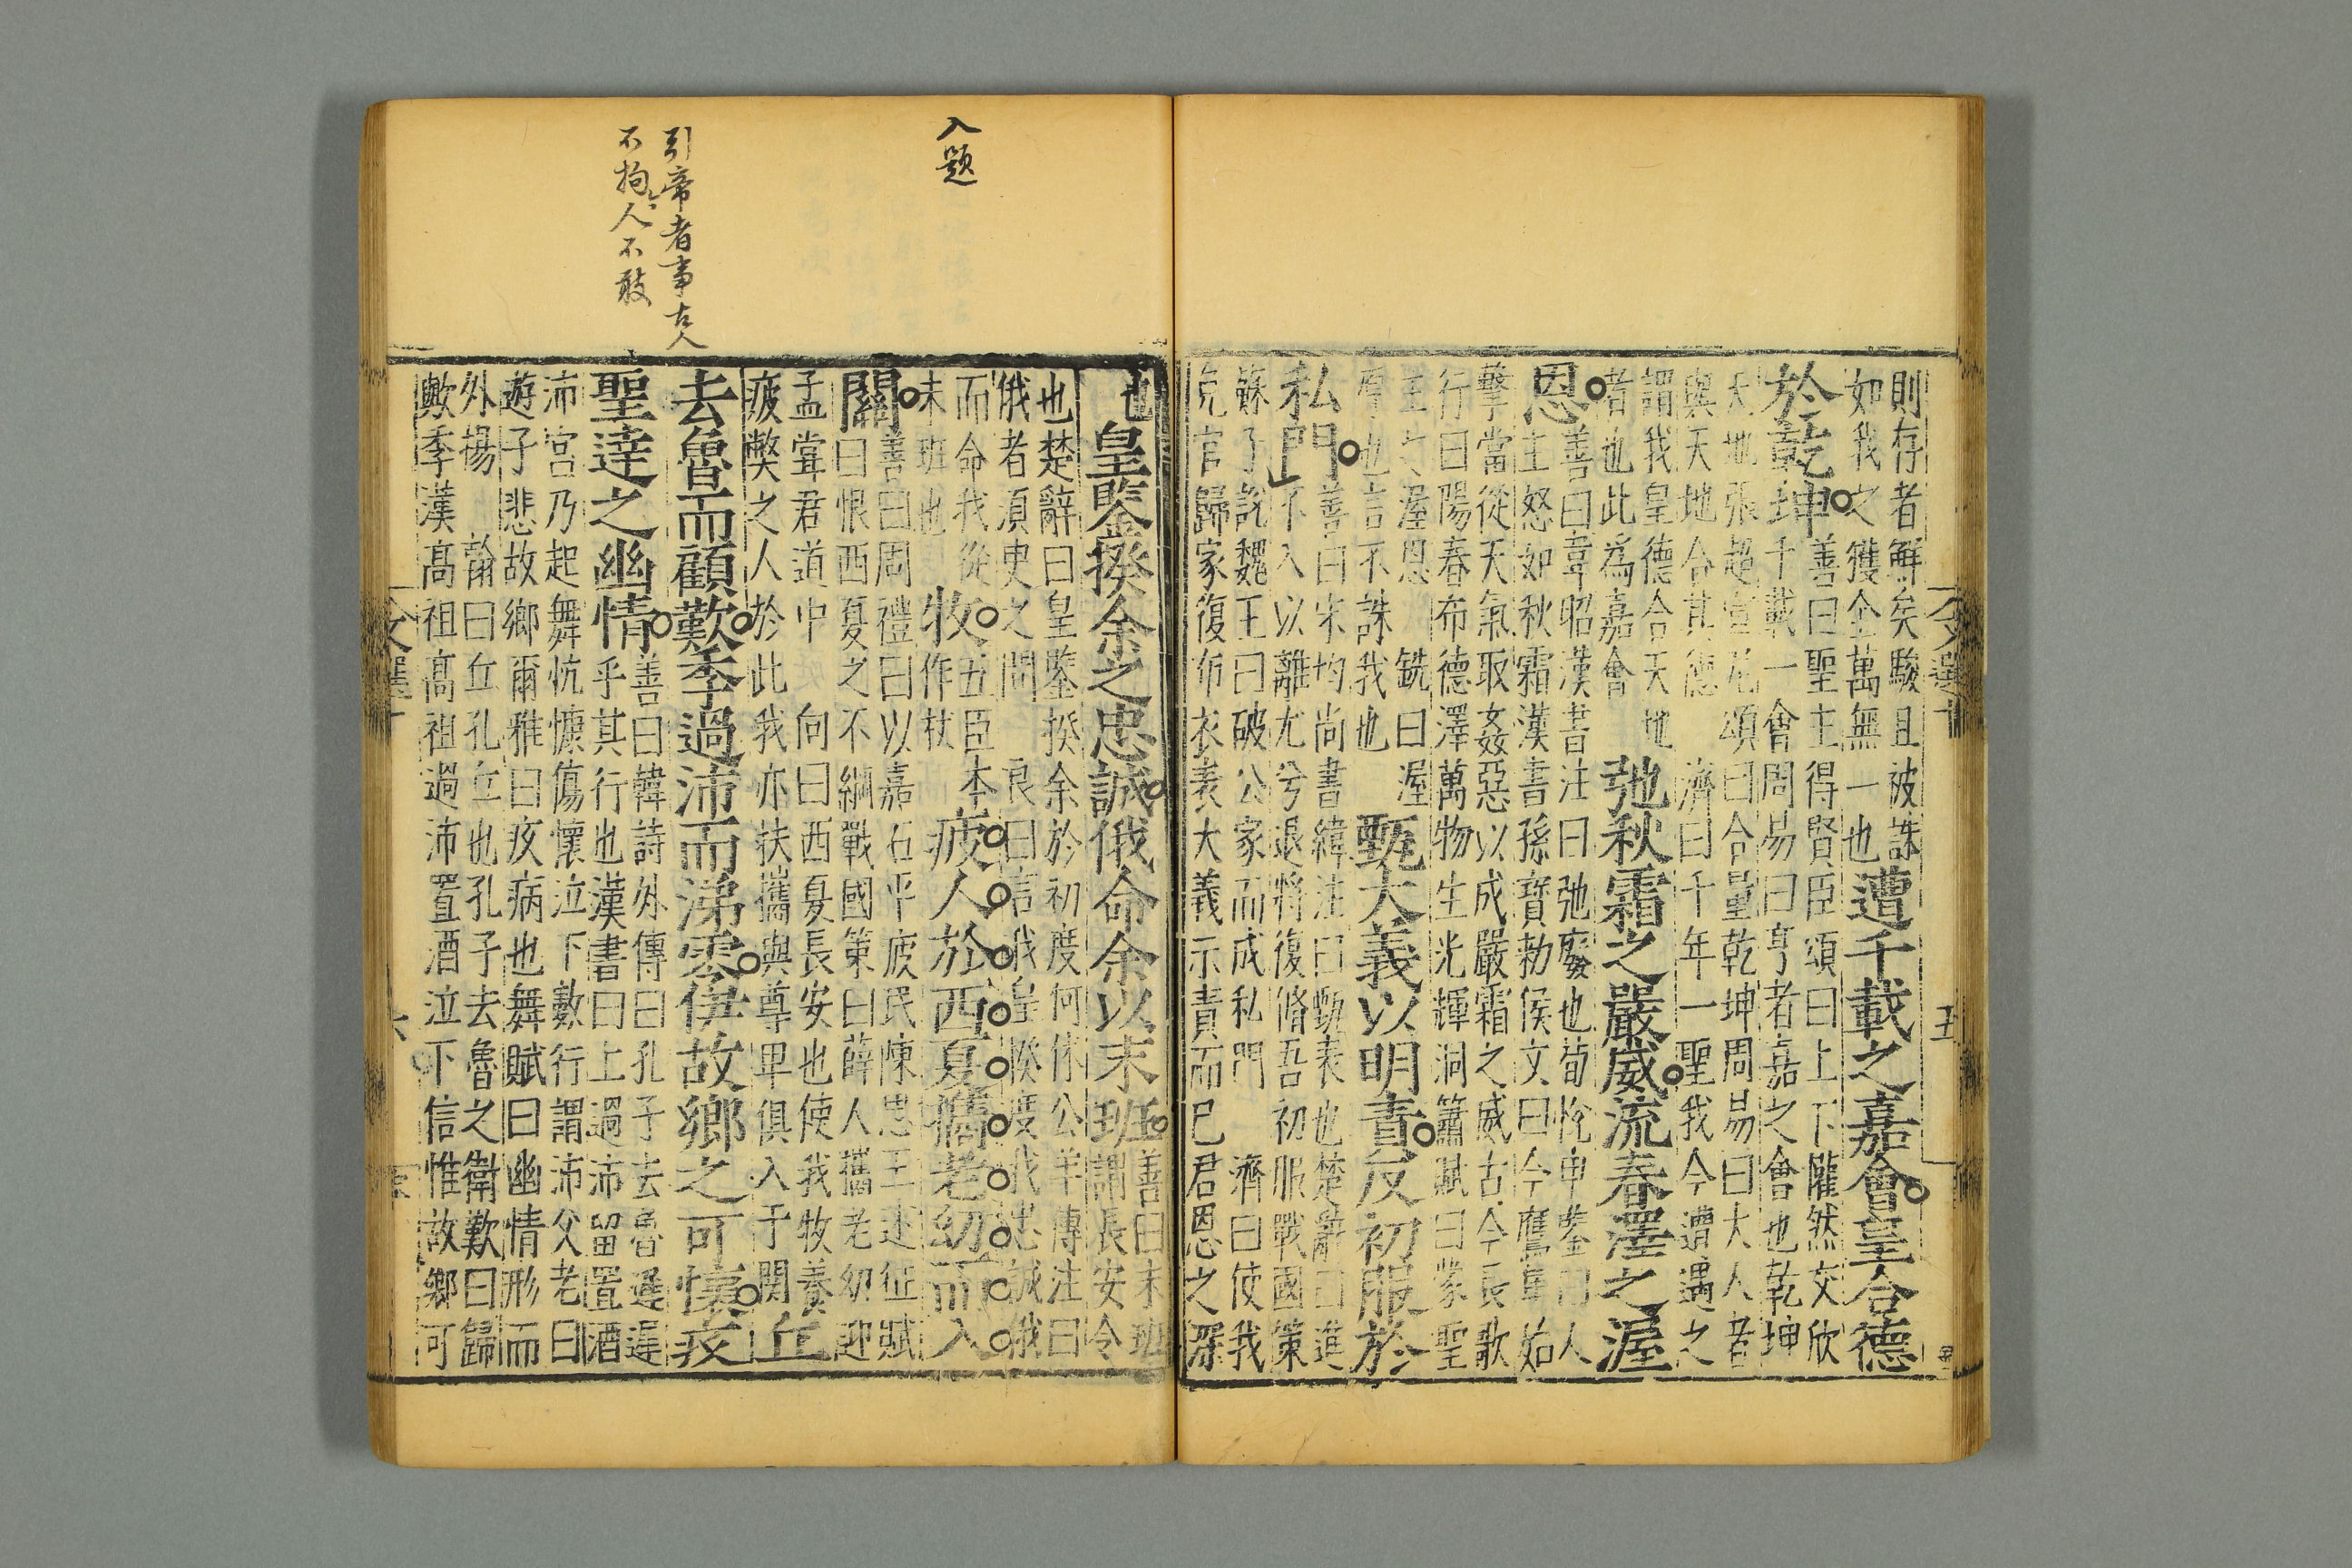 則存者解矣駿且被誅
如我之獲全萬無一也
遭千載之嘉會皇合德
於乾坤
善曰聖主得賢臣頌曰上下隴然交欣
千載一會周易曰亨者嘉之會也乾坤
天地張超宣尼頌曰合量乾坤周易曰大人者
與天地合其德
濟曰千年一聖我今遭遇之
謂我皇德合天地
者也此為嘉會
弛秋霜之嚴威流春澤之渥
恩
善曰韋昭漢書注曰弛廢也荀悅申鑒曰人
主怒如秋霜漢書孫寶勑侯文曰今鷹隼始
擊當從天氣取姦惡以成嚴霜之威古今長歌
行曰陽春布德澤萬物生光輝洞簫賦曰蒙聖
主之渥恩
銑曰渥
厚也言不誅我也
甄大義以明責反初服於
私門
善曰宋均尚書緯注曰甄表也楚辭曰進
不入以離尤兮退將復脩吾初服戰國策
蘇子說魏王曰破公家而成私門
濟曰使我
免官歸家復布衣表大義示責而已君恩之深
也
皇鑒揆余之忠誠俄命余以末班
善曰末班
謂長安令
也楚辭曰皇鑒揆余於初度何休公羊傳注曰
俄者須臾之間
良曰言我皇揆度我忠誠俄
而命我從
末班也
牧
五臣本
作杖
疲人於西夏攜老幼而入
關
善曰周禮曰以嘉石平疲民陳思王述征賦
曰恨西夏之不綱戰國策曰薛人攜老幼迎
孟嘗君道中
向曰西夏長安也使我牧養
疲弊之人於此我亦扶攜與尊卑俱入于關
丘
去魯而顧歎季過沛而涕零伊故鄉之可懷疚
聖達之幽情
善曰韓詩外傳曰孔子去魯遲遲
乎其行也漢書曰上過沛留置酒
沛宮乃起舞忼慷傷懷泣下數行謂沛父老曰
遊子悲故鄉爾雅曰疚病也舞賦曰幽情形而
外揚
翰曰丘孔丘也孔子去魯之衛歎曰歸
歟季漢高祖高祖過沛置酒泣下信惟故鄉可
文選十
五
六
入題
引帝者事古人
不拘今人不敢